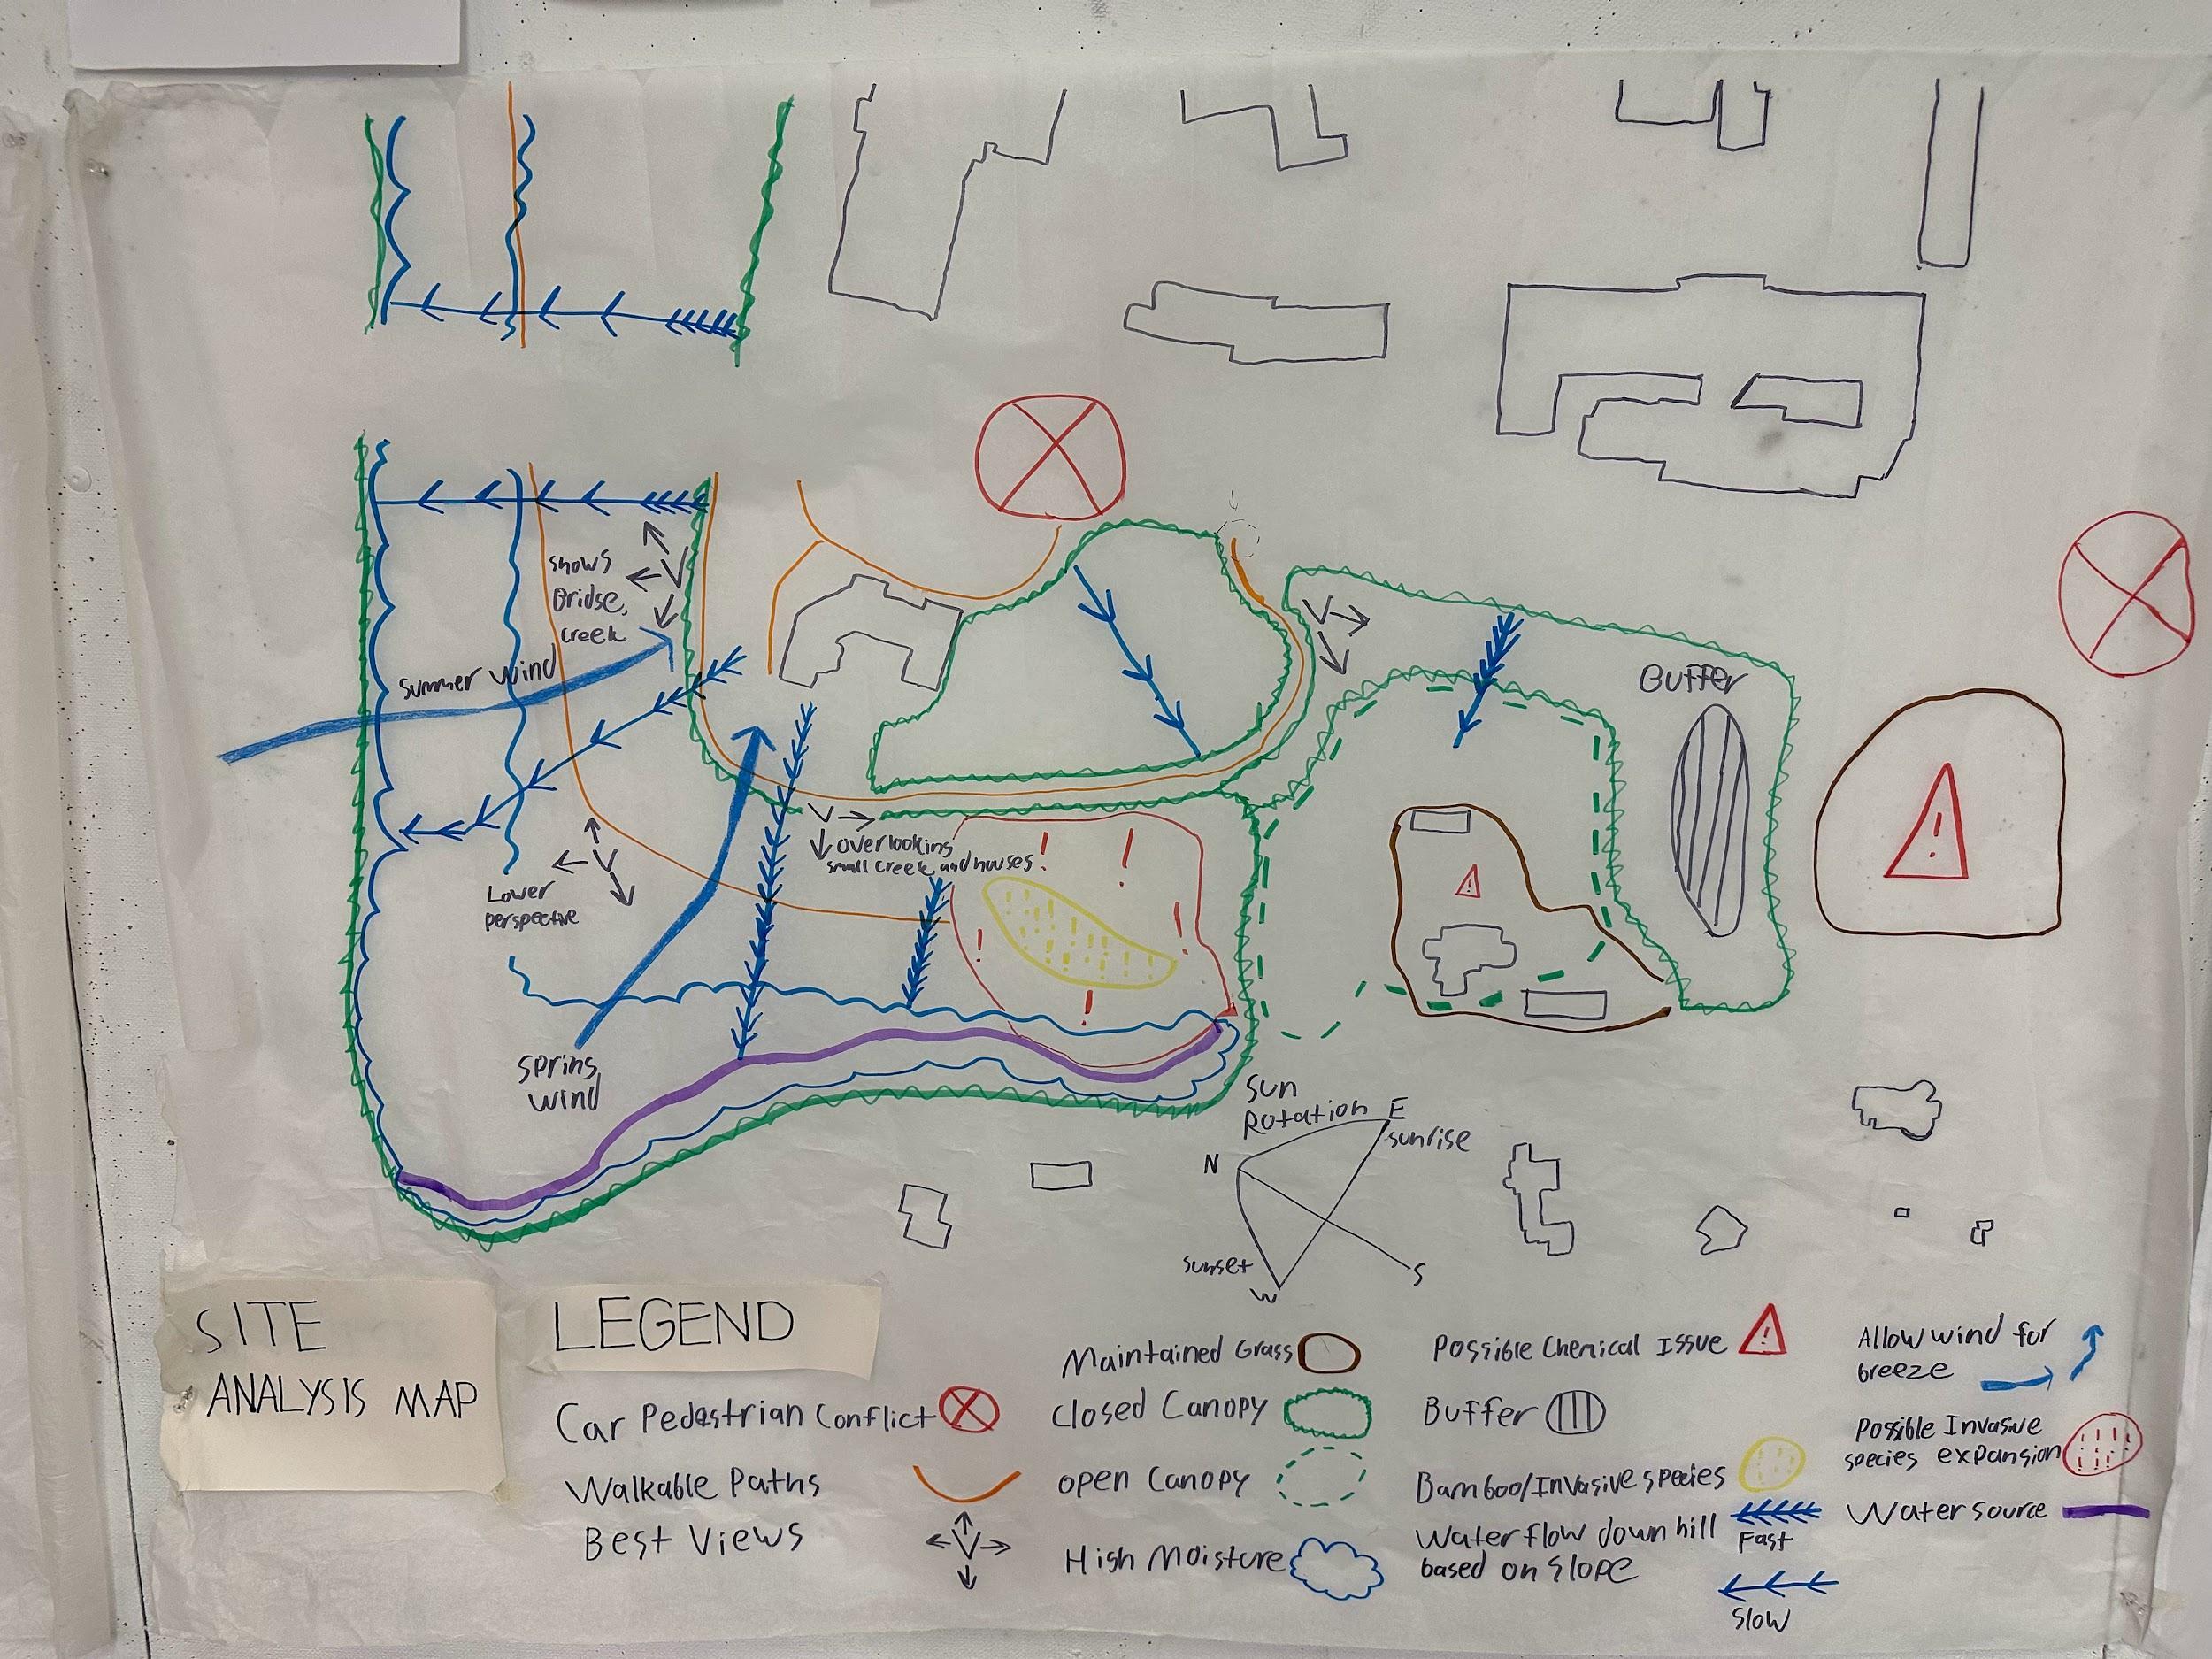 shows
Bridge,
creek
Summer Wind
Buffer
V overlooking
small creek and houses
Lower
perspective
Spring
wind
Sun
Rotation
E
sunrise
N
sunset
S
W
SITE
ANALYSIS MAP
LEGEND
Car Pedestrian Conflict
Walkable Paths
Best Views
Maintained Grass
Closed Canopy
Open Canopy
High Moisture
Possible Chemical Issue
Buffer
Bamboo/Invasive species
Water flow down hill
based on slope
Fast
Slow
Allow wind for
breeze
Possible Invasive
species expansion
Water source